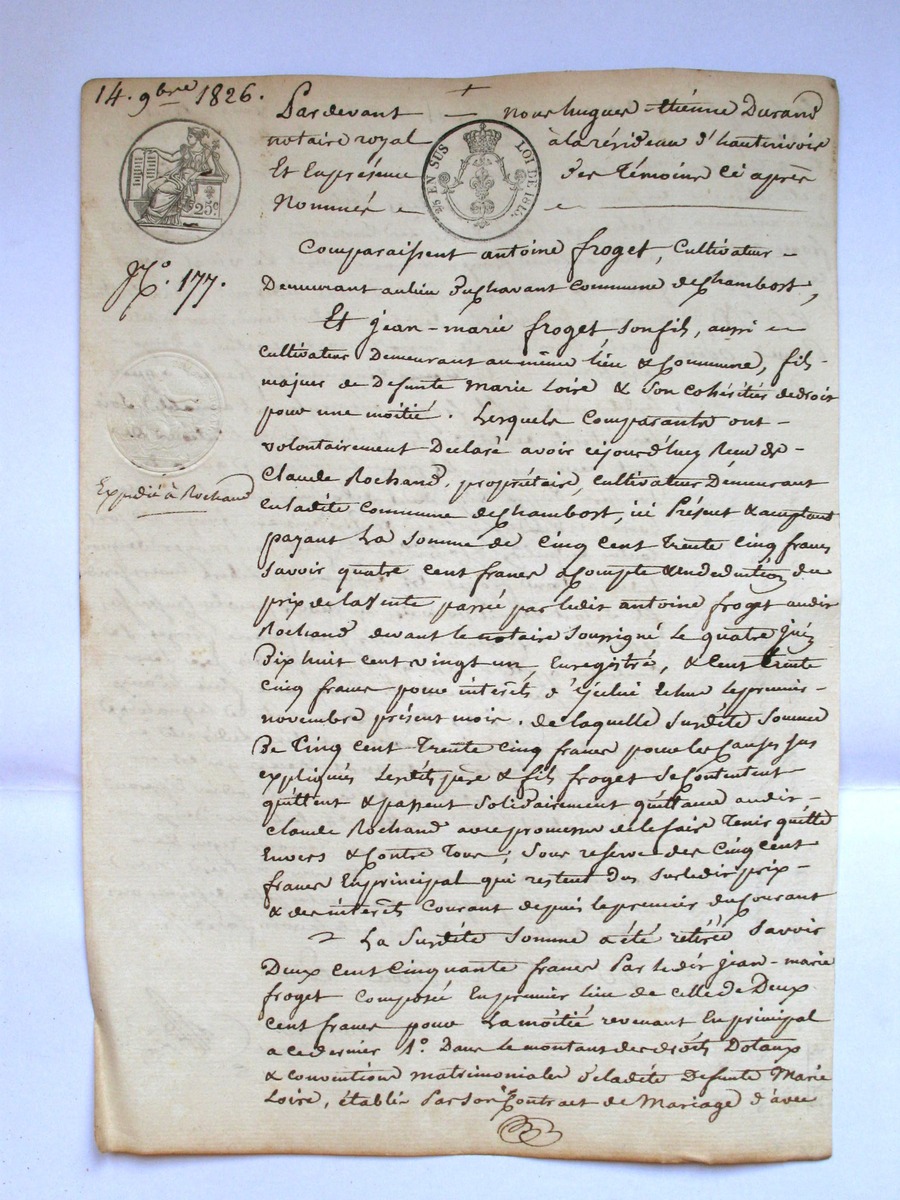 14. 9bre 1826.
Pardevant nous hugues-étienne Durand
notaire royal à la résidence d'hauterivoire
Et En présence des Témoins Ci après
Nommés
25 EN SUS LOI DE 1816.
25c
No. 177.
Comparaissent antoine froget, Cultivateur
Demeurant au lieu du Chavant Commune de Chambost,
Et jean-marie froget son fils, aussi
Cultivateur Demeurant au même lieu & Commune, fils
majeur de Defunte Marie Loire & Son Cohéritier de droit
pour une moitié. Lesquels Comparants ont
volontairement Declaré avoir cejourd'huy Reçu de
Claude Rochand, propriétaire, Cultivateur Demeurant
Expédié à Rochand
En ladite Commune de Chambost, ici Présent & acceptant
payant La Somme de Cinq Cent Trente Cinq francs
Savoir quatre Cent francs à Compte & en deduction du
prix de la Vente passée par ledit antoine froget audit
Rochand devant le notaire Soussigné le quatre
Dix huit Cent vingt un, Enregistré, & Cent trente
Cinq francs pour intérêts d'Icelui Echus le premier
novembre présent mois. de laquelle Susdite Somme
De Cinq Cent Trente Cinq francs pour les Causes sus
expliquées Lesdits père & fils froget Se Contentent
quittent & passent Solidairement quittance audit
Claude Rochand avec promesse de le faire Tenir quitte
Envers & Contre Tous, Sous reserve des Cinq Cent
francs En principal qui restent dus Sur ledit prix
& des intérêts Courant depuis le premier du Courant
La Susdite Somme a été retirée Savoir
Deux Cent Cinquante francs Par ledit jean-marie
froget Composée En premier lieu de Celle de Deux
Cent francs pour La moitié revenant En principal
a ce dernier 1o. Dans le montant des droits Dotaux
& Conventions matrimoniales de ladite Defunte Marie
Loire, établis Par Son Contrat de Mariage d'avec